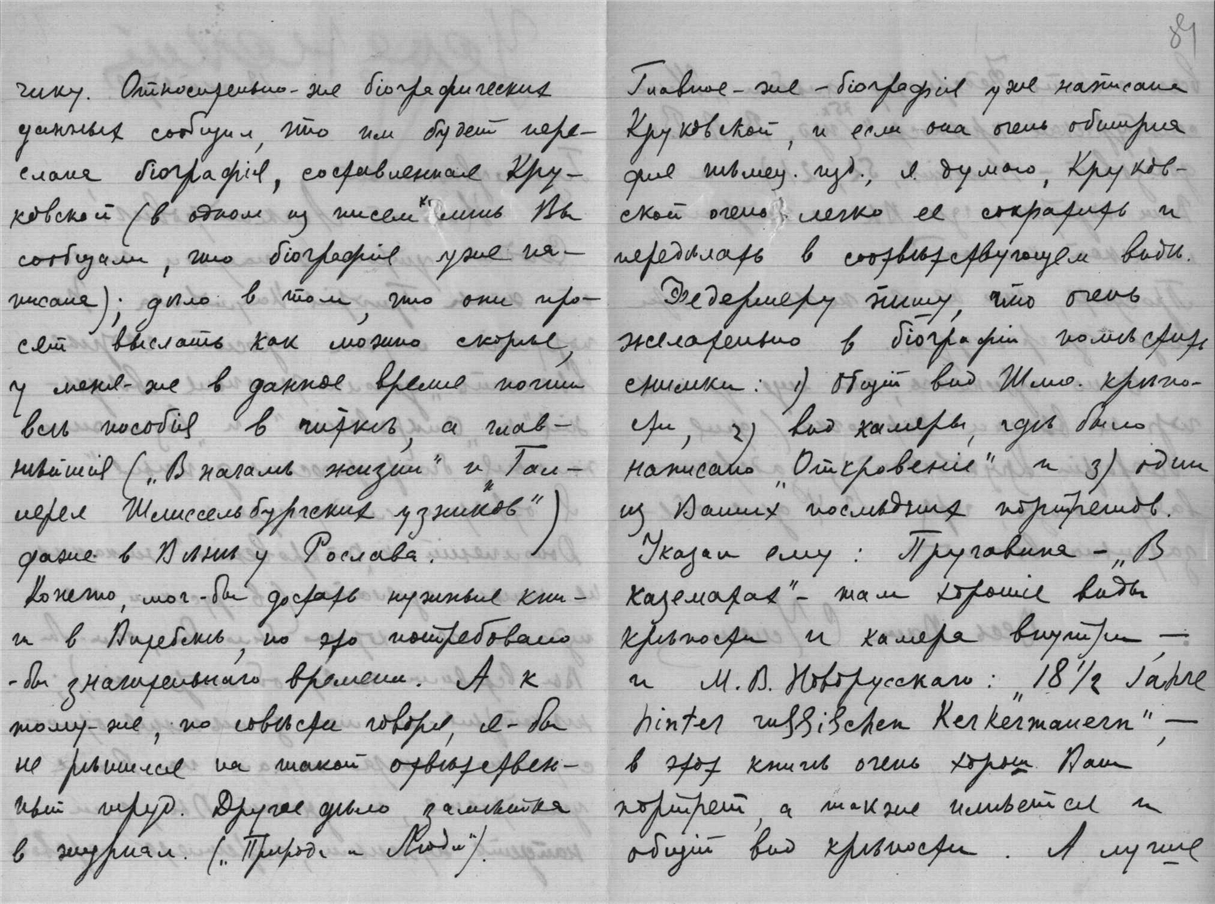 чику. Относительно-же біографических
данных сообщил, что им будет пере-
слана біографія, составленная Кру-
ковской (в одном из писем лишь Вы
сообщали, что біографія уже на-
писана); дѣло в том, что они про-
сят выслать как можно скорѣе,
у меня-же в данное время почти
всѣ пособія в читкѣ, а глав-
нѣйшія („В началѣ жизни" и „Гал-
лерея Шлиссельбургских узников")
даже в Вѣнѣ у Рослава.
Конечно, мог-бы достать нужные кни-
и в Витебскѣ, но это потребовало
-бы значительнаго времени. А к
тому-же, по совѣсти говоря, я-бы
не рѣшился на такой отвѣтствен-
ный труд. Другое дѣло, замѣтка
в журнал. („Природа и Люди").
84
Главное-же - біографія уже написана
Круковской, и если она очень обширна
для нѣмец. изд., я думаю, Круков-
ской очень легко ее сократить и
передѣлать в соотвѣтствующем видѣ.
Федермеру пишу, что очень
желательно в біографіи помѣстить
снимки: 1) общій вид Шлис. крѣпо-
сти, 2) вид камеры, гдѣ было
написано „Откровеніе" и 3) один
из Ваших послѣдних портретов.
Указал ему: Пругавина - „В
казематах" - там хорошіе виды
крѣпости и камера внутри, —
и М. В. Новорусскаго: „18 1/2 Jahre
hinter russischen Kerkermauern", —
в этой книгѣ очень хорош Ваш
портрет, а также имѣется и
общій вид крѣпости. А лучше